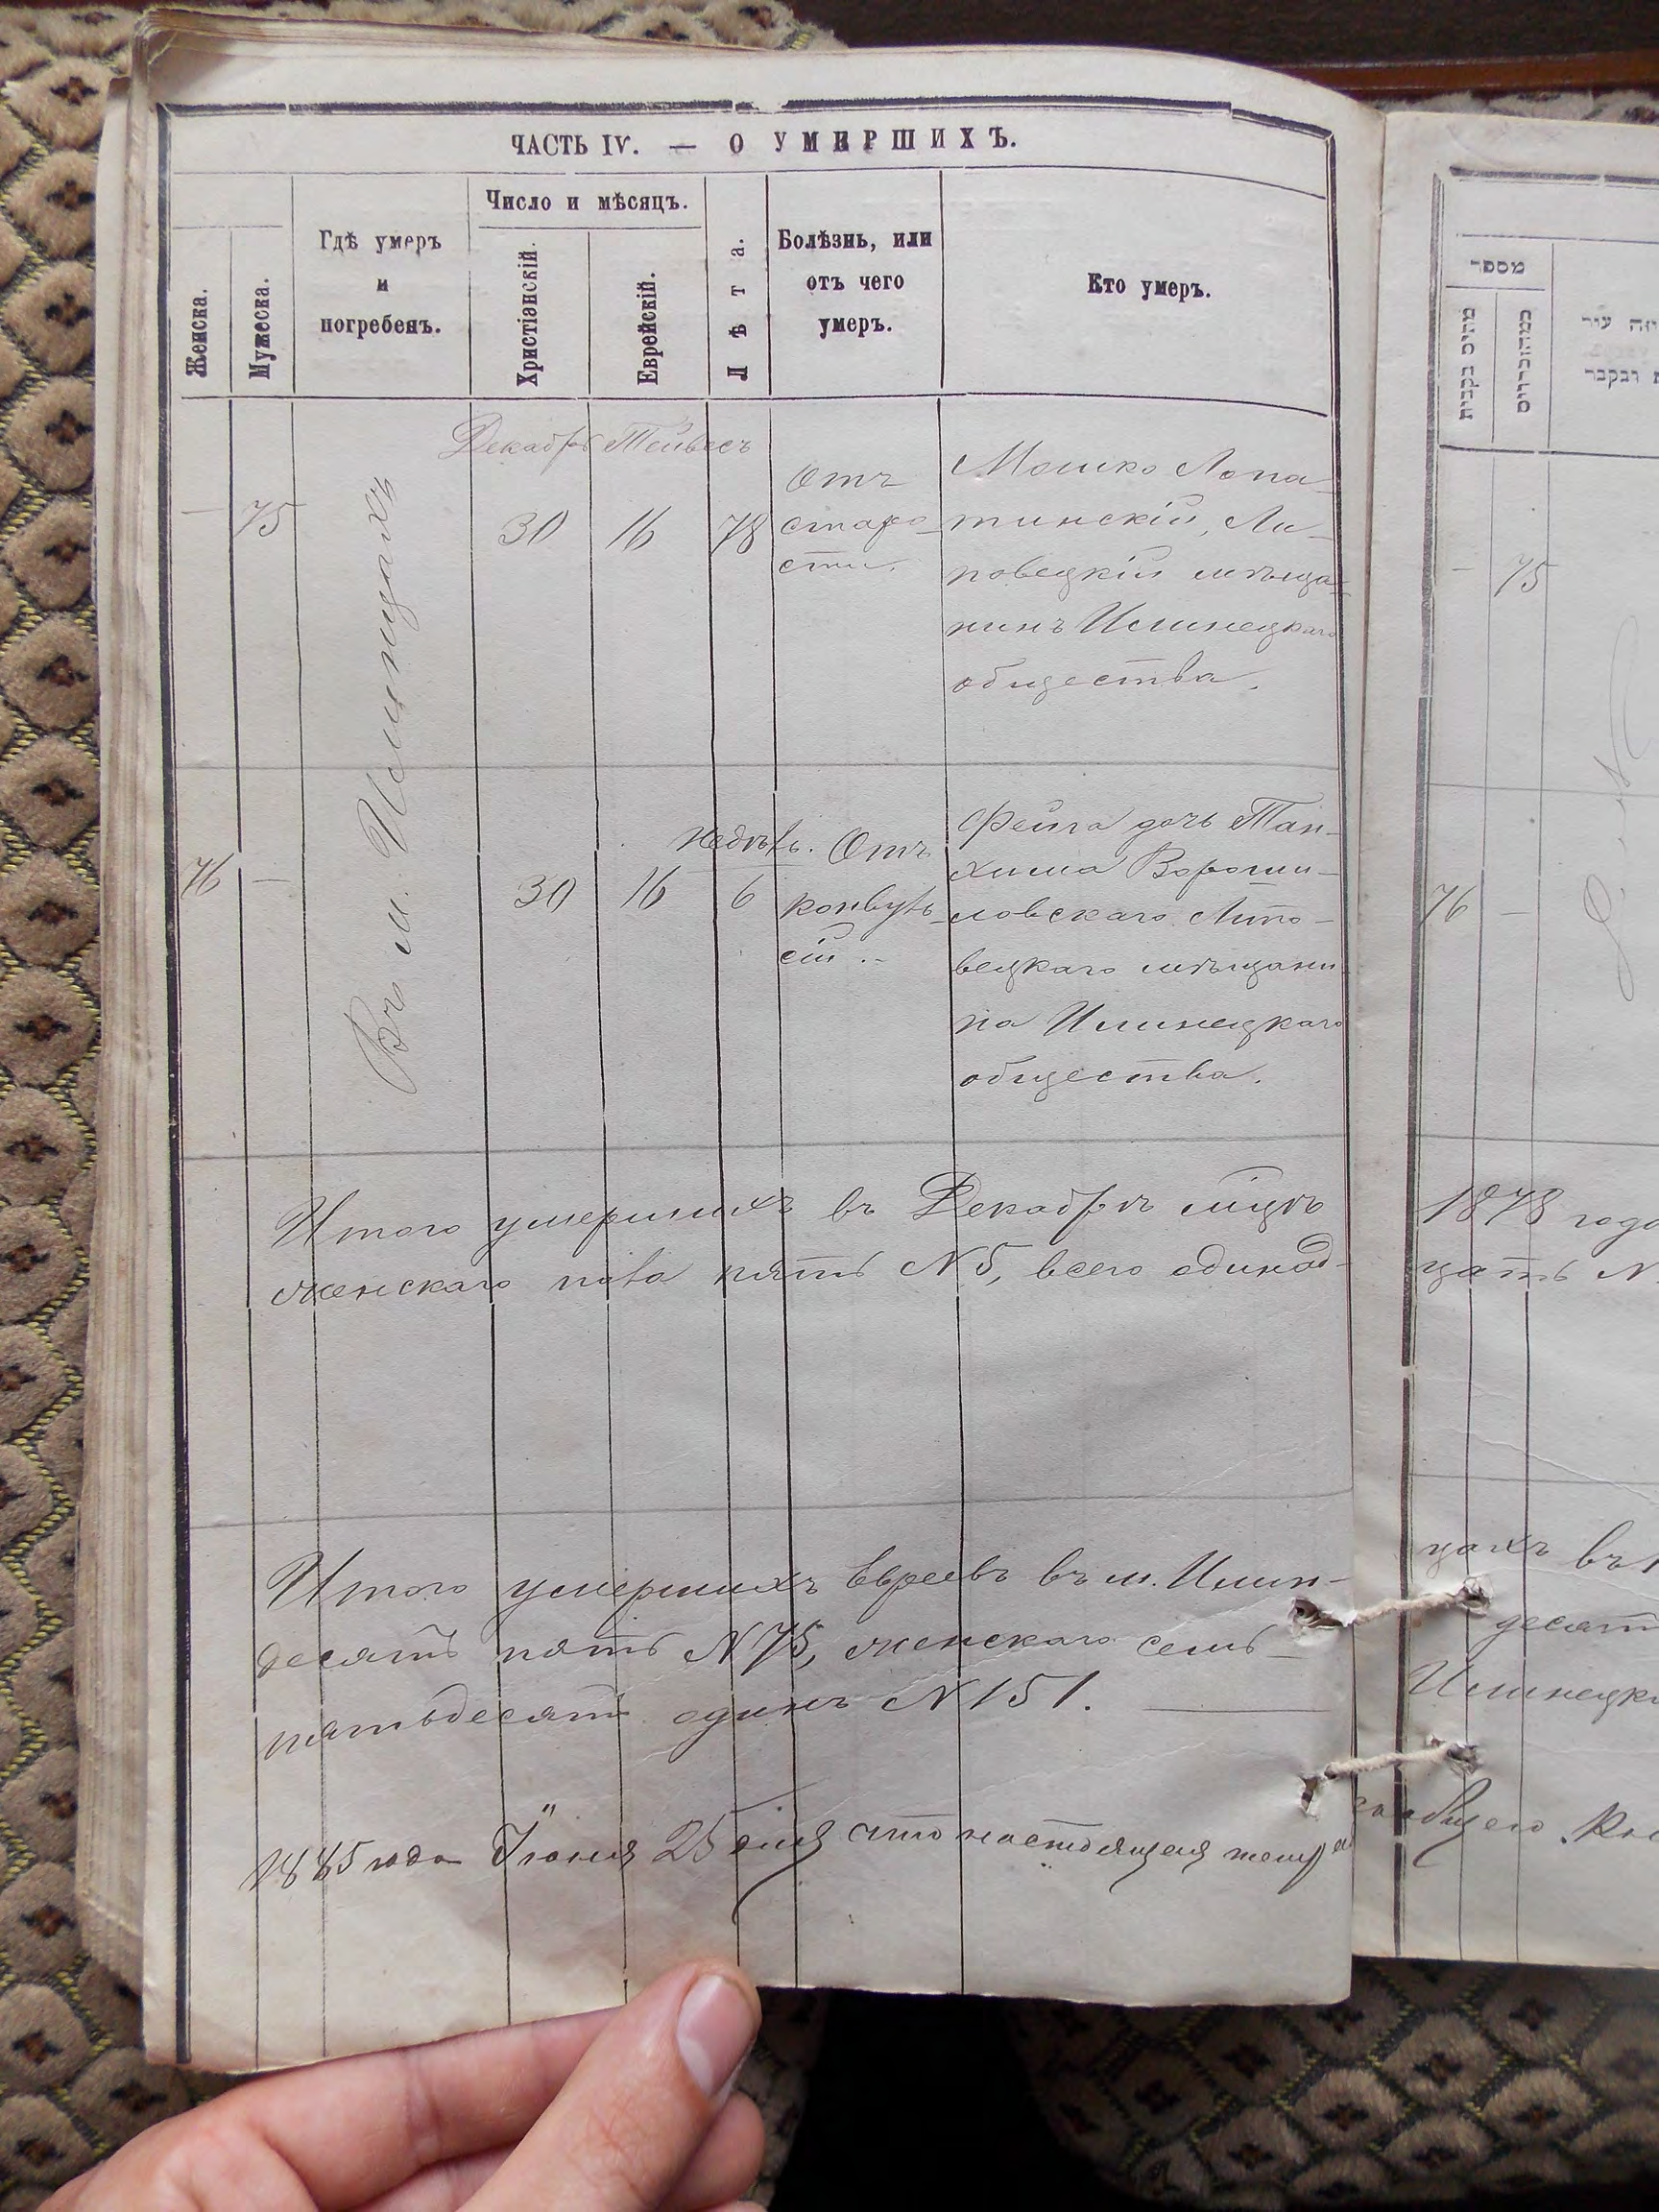 ЧАСТЬ IV. — О УМЕРШИХЪ.
Женска.
Мужеска.
Гдѣ умеръ
и
погребенъ.
Число и мѣсяцъ.
Христіанскій.
Еврейскій.
Лѣта.
Болѣзнь, или
отъ чего
умеръ.
Кто умеръ.
Декабрь Тейвесъ
— 75
Въ м. Илинцахъ
30 16 78
Отъ
старо-
сти.
Мошко Лопа-
тинскій, Ли-
повецкій мѣща-
нинъ Илинецкаго
общества.
76 —
30 16
Недѣль.
6
Отъ
конвуль-
сіи
Фейга дочь Тан-
хима Ворош-
ловскаго Липо-
вецкаго мѣщани-
на Илинецкаго
общества.
Итого умершихъ въ Декабрѣ мѣцѣ
женскаго пола пять N 5, всего одинад-
Итого умершихъ Евреевъ въ м. Илин-
десять пять N 75, женскаго семь-
пятьдесятъ одинъ N 151.
1885 года Іюня 25 дня что настоящея
מספר
75
— 
76 —
1878 года
цать N
цахъ въ 1
десят
Илинецк